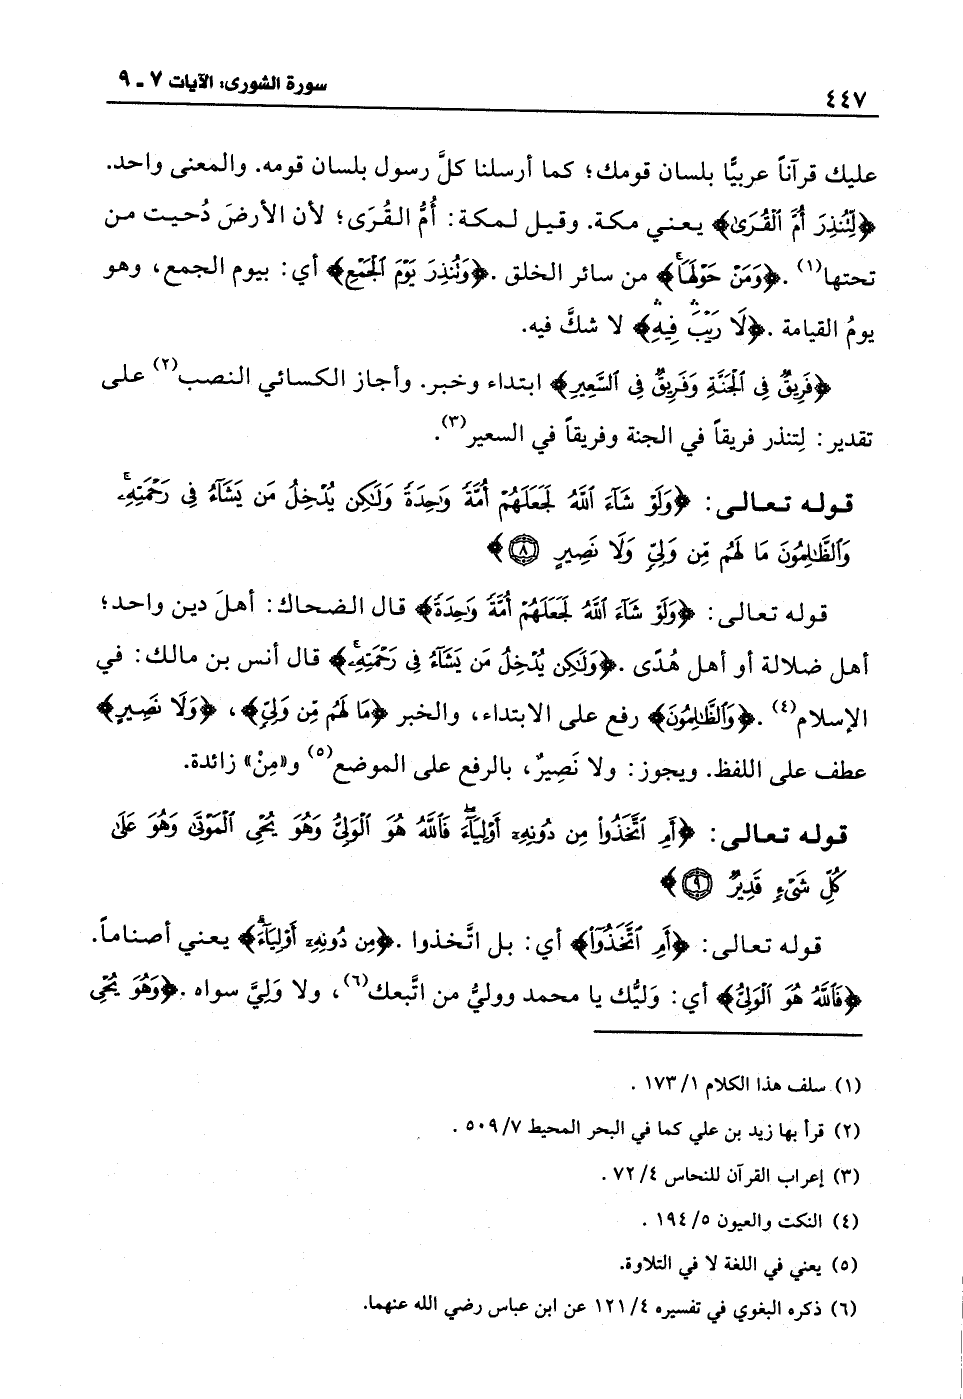 سورة الشورى: الآيات ٧ ـ ٩
٤٤٧
عليك قرآناً عربيًّا بلسان قومك؛ كما أرسلنا كلَّ رسول بلسان قومه. والمعنى واحد.
﴿لِّتُنذِرَ أُمَّ ٱلْقُرَىٰ﴾ يعني مكة. وقيل لمكة: أُمُّ القُرَى؛ لأن الأرضَ دُحيت من
تحتها(١). ﴿وَمَنْ حَوْلَهَا﴾ من سائر الخلق. ﴿وَتُنذِرَ يَوْمَ ٱلْجَمْعِ﴾ أي: بيوم الجمع، وهو
يومُ القيامة. ﴿لَا رَيْبَ فِيهِ﴾ لا شكَّ فيه.
﴿فَرِيقٌ فِى ٱلْجَنَّةِ وَفَرِيقٌ فِى ٱلسَّعِيرِ﴾ ابتداء وخبر. وأجاز الكسائي النصب(٢) على
تقدير: لِتنذر فريقاً في الجنة وفريقاً في السعير(٣).
قوله تعالى: ﴿وَلَوْ شَآءَ ٱللَّهُ لَجَعَلَهُمْ أُمَّةً وَٰحِدَةً وَلَٰكِن يُدْخِلُ مَن يَشَآءُ فِى رَحْمَتِهِۦۚ
وَٱلظَّٰلِمُونَ مَا لَهُم مِّن وَلِىٍّ وَلَا نَصِيرٍ ٨﴾
قوله تعالى: ﴿وَلَوْ شَآءَ ٱللَّهُ لَجَعَلَهُمْ أُمَّةً وَٰحِدَةً﴾ قال الضحاك: أهلَ دين واحد؛
أهل ضلالة أو أهل هُدًى. ﴿وَلَٰكِن يُدْخِلُ مَن يَشَآءُ فِى رَحْمَتِهِۦۚ﴾ قال أنس بن مالك: في
الإسلام(٤). ﴿وَٱلظَّٰلِمُونَ﴾ رفع على الابتداء، والخبر ﴿مَا لَهُم مِّن وَلِىٍّ﴾، ﴿وَلَا نَصِيرٍ﴾
عطف على اللفظ. ويجوز: ولا نَصِيرٌ، بالرفع على الموضع(٥) و«مِنْ» زائدة.
قوله تعالى: ﴿أَمِ ٱتَّخَذُوا۟ مِن دُونِهِۦٓ أَوْلِيَآءَۖ فَٱللَّهُ هُوَ ٱلْوَلِىُّ وَهُوَ يُحْىِ ٱلْمَوْتَىٰ وَهُوَ عَلَىٰ
كُلِّ شَىْءٍ قَدِيرٌ ٩﴾
قوله تعالى: ﴿أَمِ ٱتَّخَذُوٓا۟﴾ أي: بل اتَّخذوا. ﴿مِن دُونِهِۦٓ أَوْلِيَآءَ﴾ يعني أصناماً.
﴿فَٱللَّهُ هُوَ ٱلْوَلِىُّ﴾ أي: وَليُّك يا محمد ووليُّ من اتَّبعك(٦)، ولا وَلِيَّ سواه. ﴿وَهُوَ يُحْىِ
(١) سلف هذا الكلام ١/ ١٧٣ .
(٢) قرأ بها زيد بن علي كما في البحر المحيط ٧/ ٥٠٩ .
(٣) إعراب القرآن للنحاس ٤/ ٧٢ .
(٤) النكت والعيون ٥/ ١٩٤ .
(٥) يعني في اللغة لا في التلاوة.
(٦) ذكره البغوي في تفسيره ٤/ ١٢١ عن ابن عباس رضي الله عنهما.